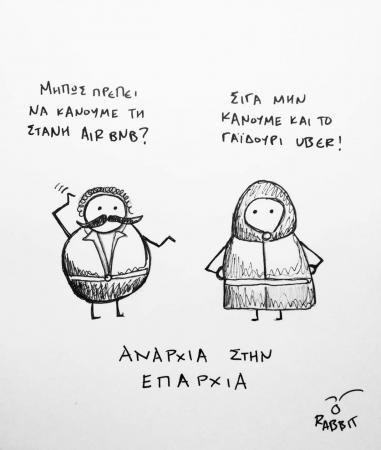 Μήπως πρέπει
να κάνουμε τη
στάνη AIRBNB?
Σιγά μην
κάνουμε και το
γαϊδούρι UBER!
Ανάρχια στην
επαρχία
RABBIT